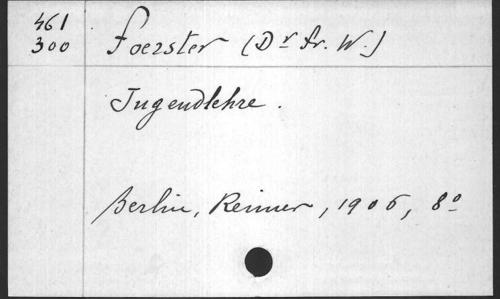 461
300
Foerster (Dr Fr. W.)
Jugendlehre.
Berlin, Reimer, 1906, 8º